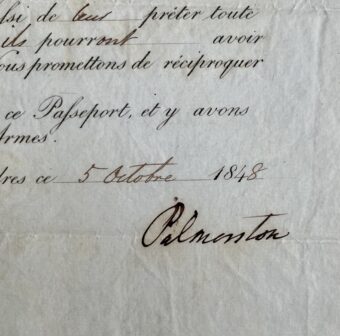 ssi de leur prêter toute
ils pourront avoir
ous promettons de réciproquer
ce Paſseport, et y avons
Armes.
dres ce 5 Octobre 1848
Palmerston